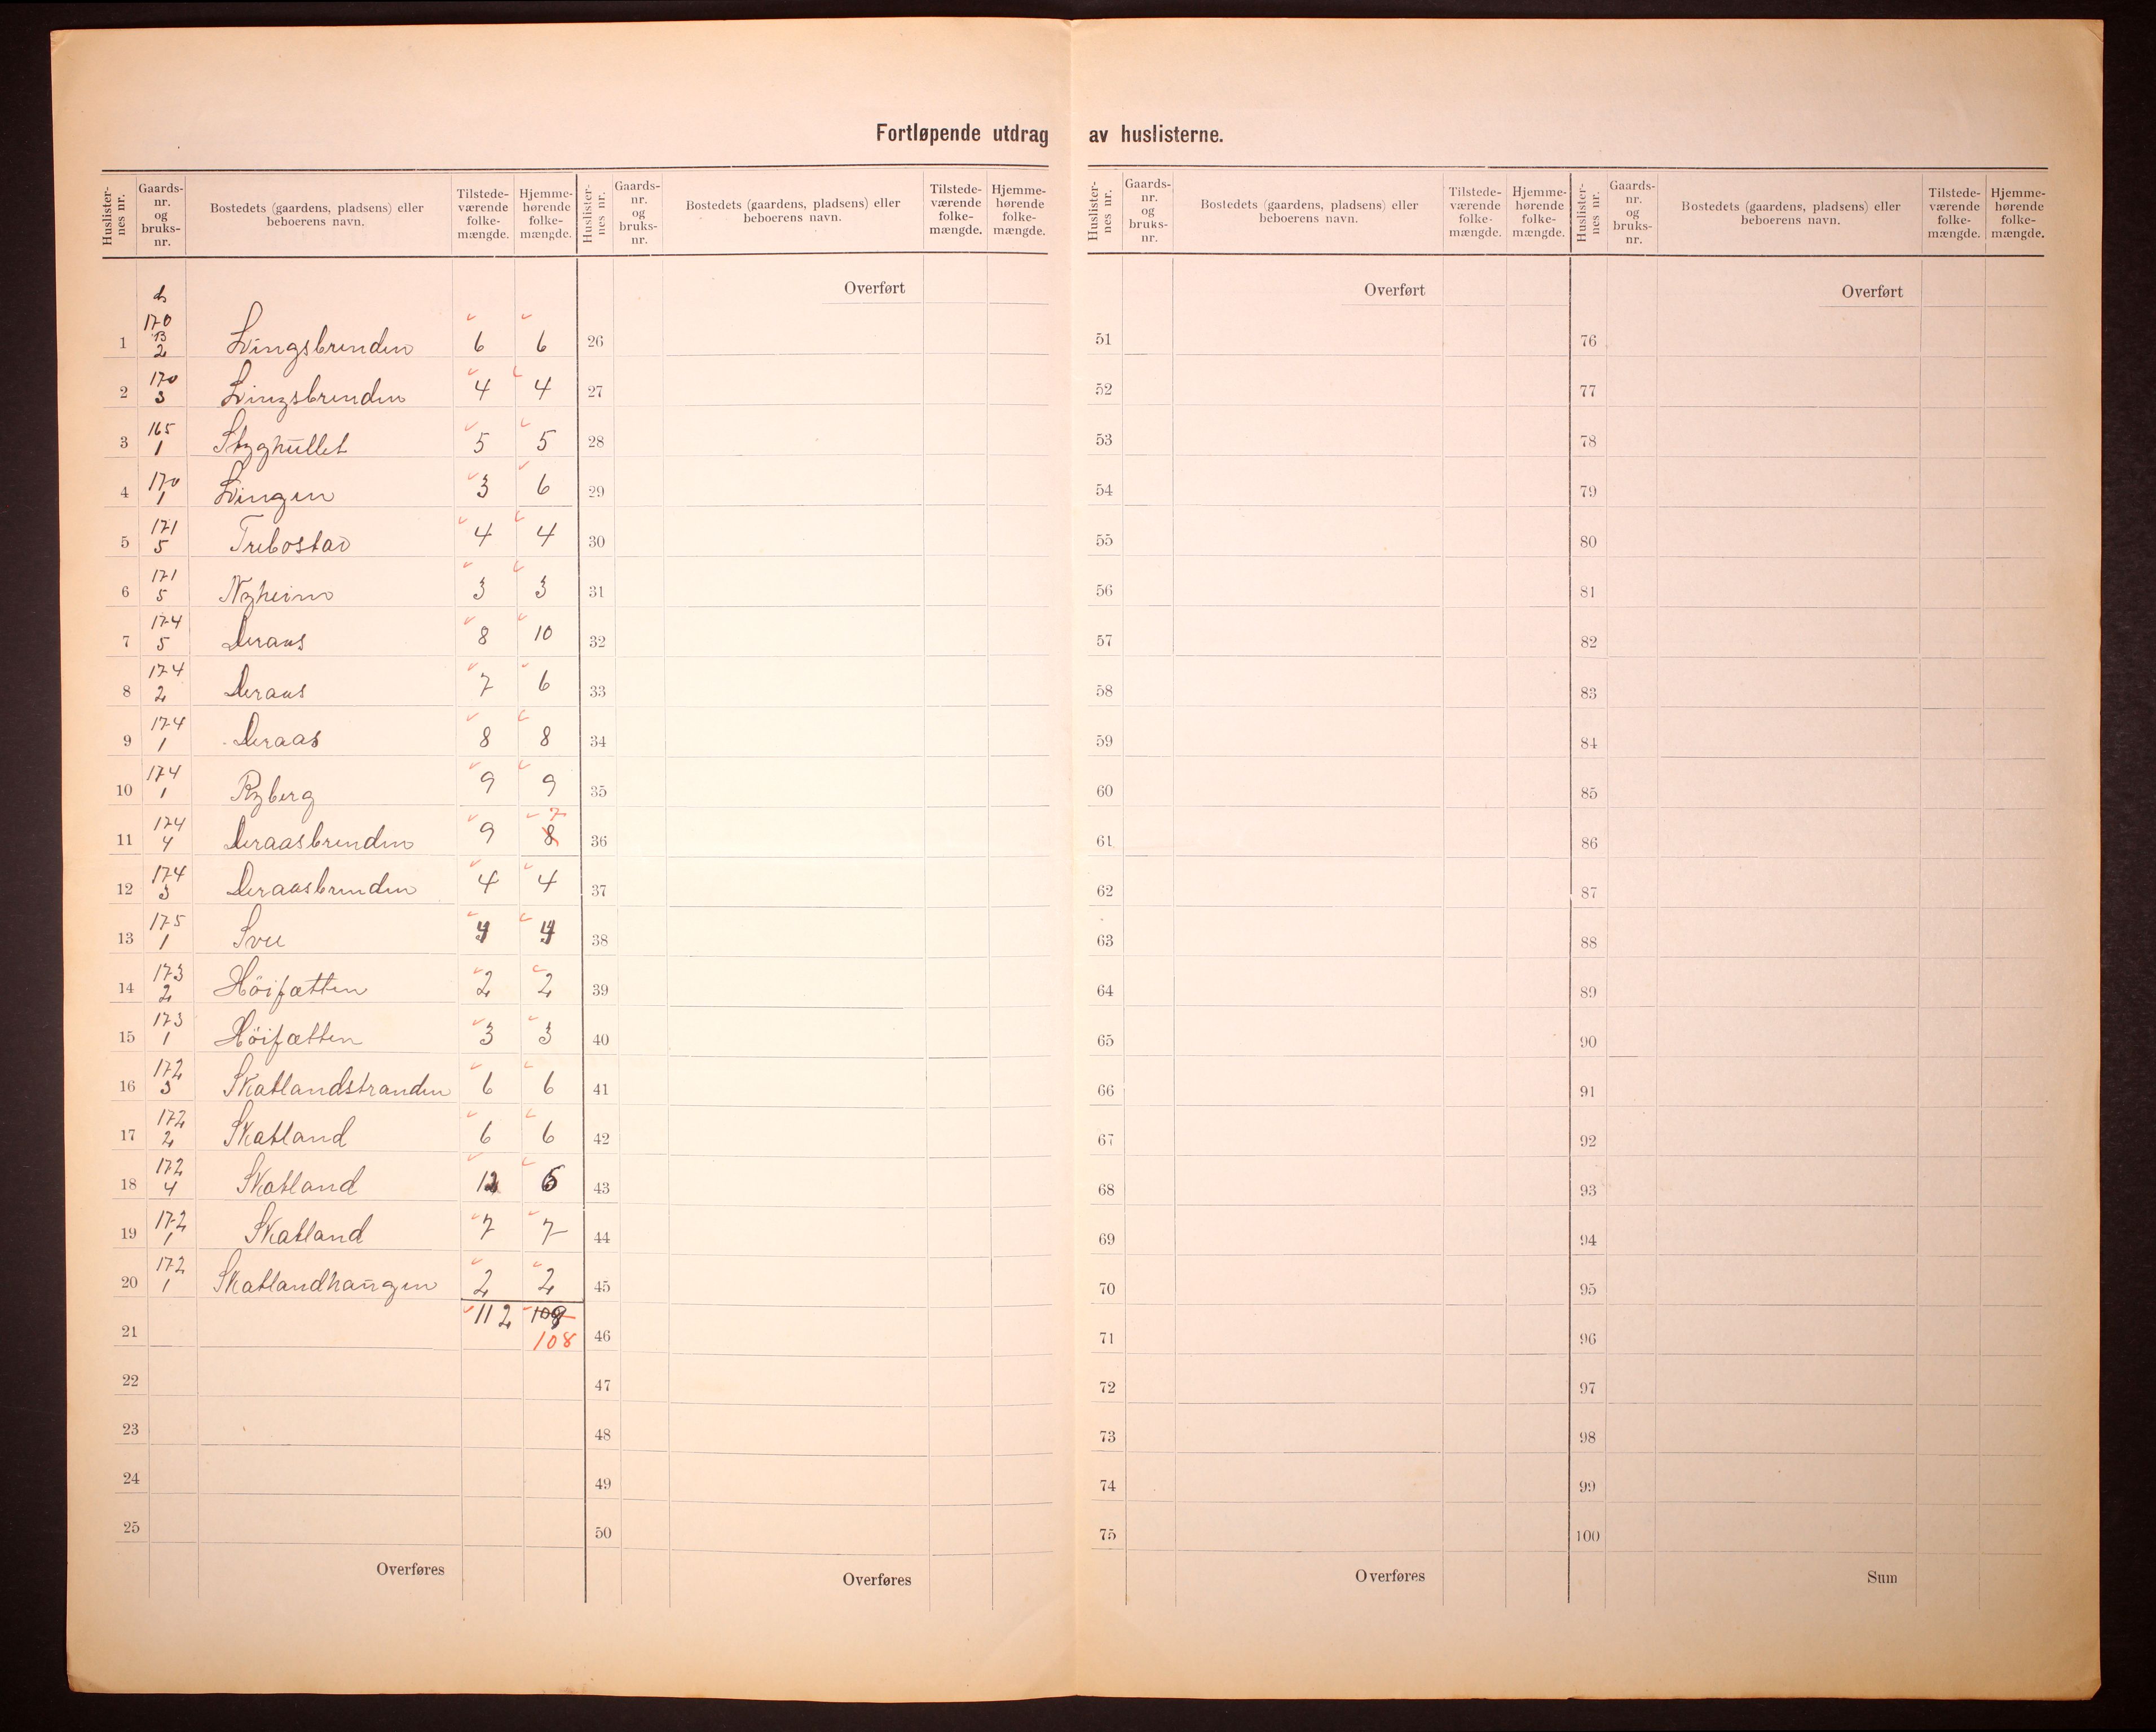 Fortløpende utdrag av huslisterne.
Huslisternes nr. Gaardsnr. og bruksnr. Bostedets (gaardens, pladsens) eller beboerens navn. Tilstedeværende folkemængde. Hjemmehørende folkemængde.
Huslisternes nr. Gaardsnr. og bruksnr. Bostedets (gaardens, pladsens) eller beboerens navn. Tilstedeværende folkemængde. Hjemmehørende folkemængde.
Huslisternes nr. Gaardsnr. og bruksnr. Bostedets (gaardens, pladsens) eller beboerens navn. Tilstedeværende folkemængde. Hjemmehørende folkemængde.
Huslisternes nr. Gaardsnr. og bruksnr. Bostedets (gaardens, pladsens) eller beboerens navn. Tilstedeværende folkemængde. Hjemmehørende folkemængde.
Overført Overført Overført
1 170 B 2 Lingsbrenden 6 6 26 51 76
2 170 3 Lingsbrenden 4 4 27 52 77
3 165 1 Styghullet 5 5 28 53 78
4 170 1 Lingen 3 6 29 54 79
5 171 5 Trebostad 4 4 30 55 80
6 171 5 Nyheim 3 3 31 56 81
7 174 5 Deraas 8 10 32 57 82
8 174 2 Deraas 7 6 33 58 83
9 174 1 Deraas 8 8 34 59 84
10 174 1 Ryberg 9 9 35 60 85
11 174 4 Deraasbrenden 9 8 7 36 61 86
12 174 3 Deraasbrenden 4 4 37 62 87
13 175 1 Svee 38 63 88
14 173 2 Höifætten 2 2 39 64 89
15 173 1 Höifætten 3 3 40 65 90
16 172 3 Skatlandstranden 6 6 41 66 91
17 172 2 Skatland 6 6 42 67 92
18 172 4 Skatland 12 6 43 68 93
19 172 1 Skatland 7 7 44 69 94
20 172 1 Skatlandhaugen 2 2 45 70 95
21 112 109 108 46 71 96
22 47 72 97
23 48 73 98
24 49 74 99
25 50 75 100
Overføres Overføres Overføres Sum